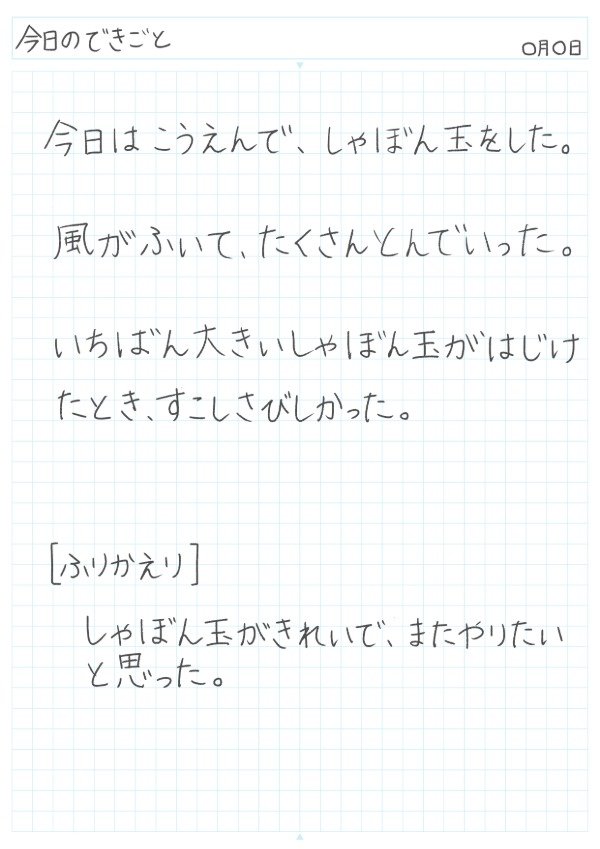 今日のできごと
〇月〇日
今日はこうえんで、しゃぼん玉をした。
風がふいて、たくさんとんでいった。
いちばん大きいしゃぼん玉がはじけ
たとき、すこしさびしかった。
[ふりかえり]
しゃぼん玉がきれいで、またやりたい
と思った。